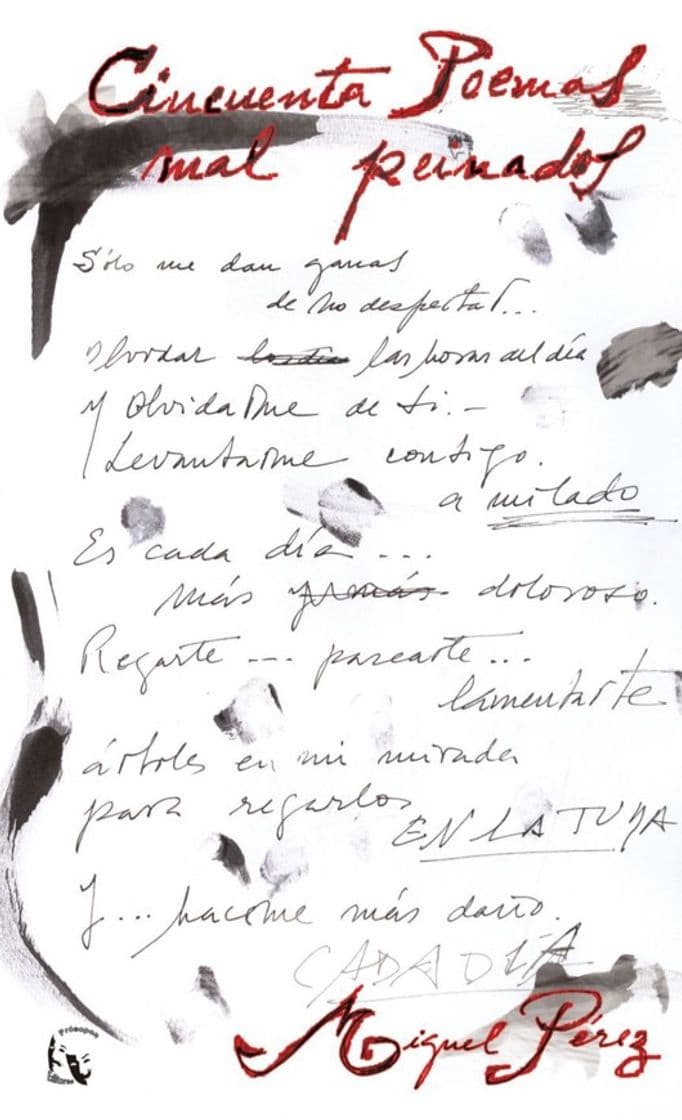 Cincuenta Poemas
mal peinados
Sólo me dan ganas
de no despertar...
olvidar los día las horas del día
y olvidarme de ti.-
Levantarme contigo.
a mi lado
Es cada día ...
más y más doloroso.
Regarte ... pasearte ...
lamentarte
árboles en mi mirada
para regarlos
EN LA TUYA
Y... hacerme más daño.
CADA DÍA
Miguel Pérez
Prósopon
Editores